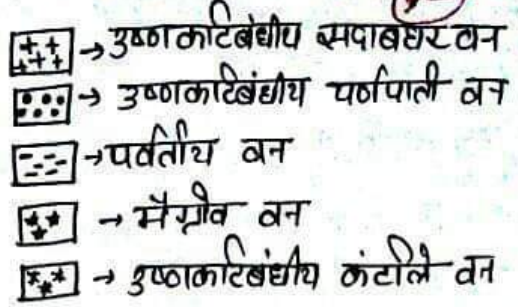 → उष्णकटिबंधीय सदाबहार वन
→ उष्णकटिबंधीय पर्णपाती वन
→ पर्वतीय वन
→ मैंग्रोव वन
→ उष्णकटिबंधीय कंटीले वन